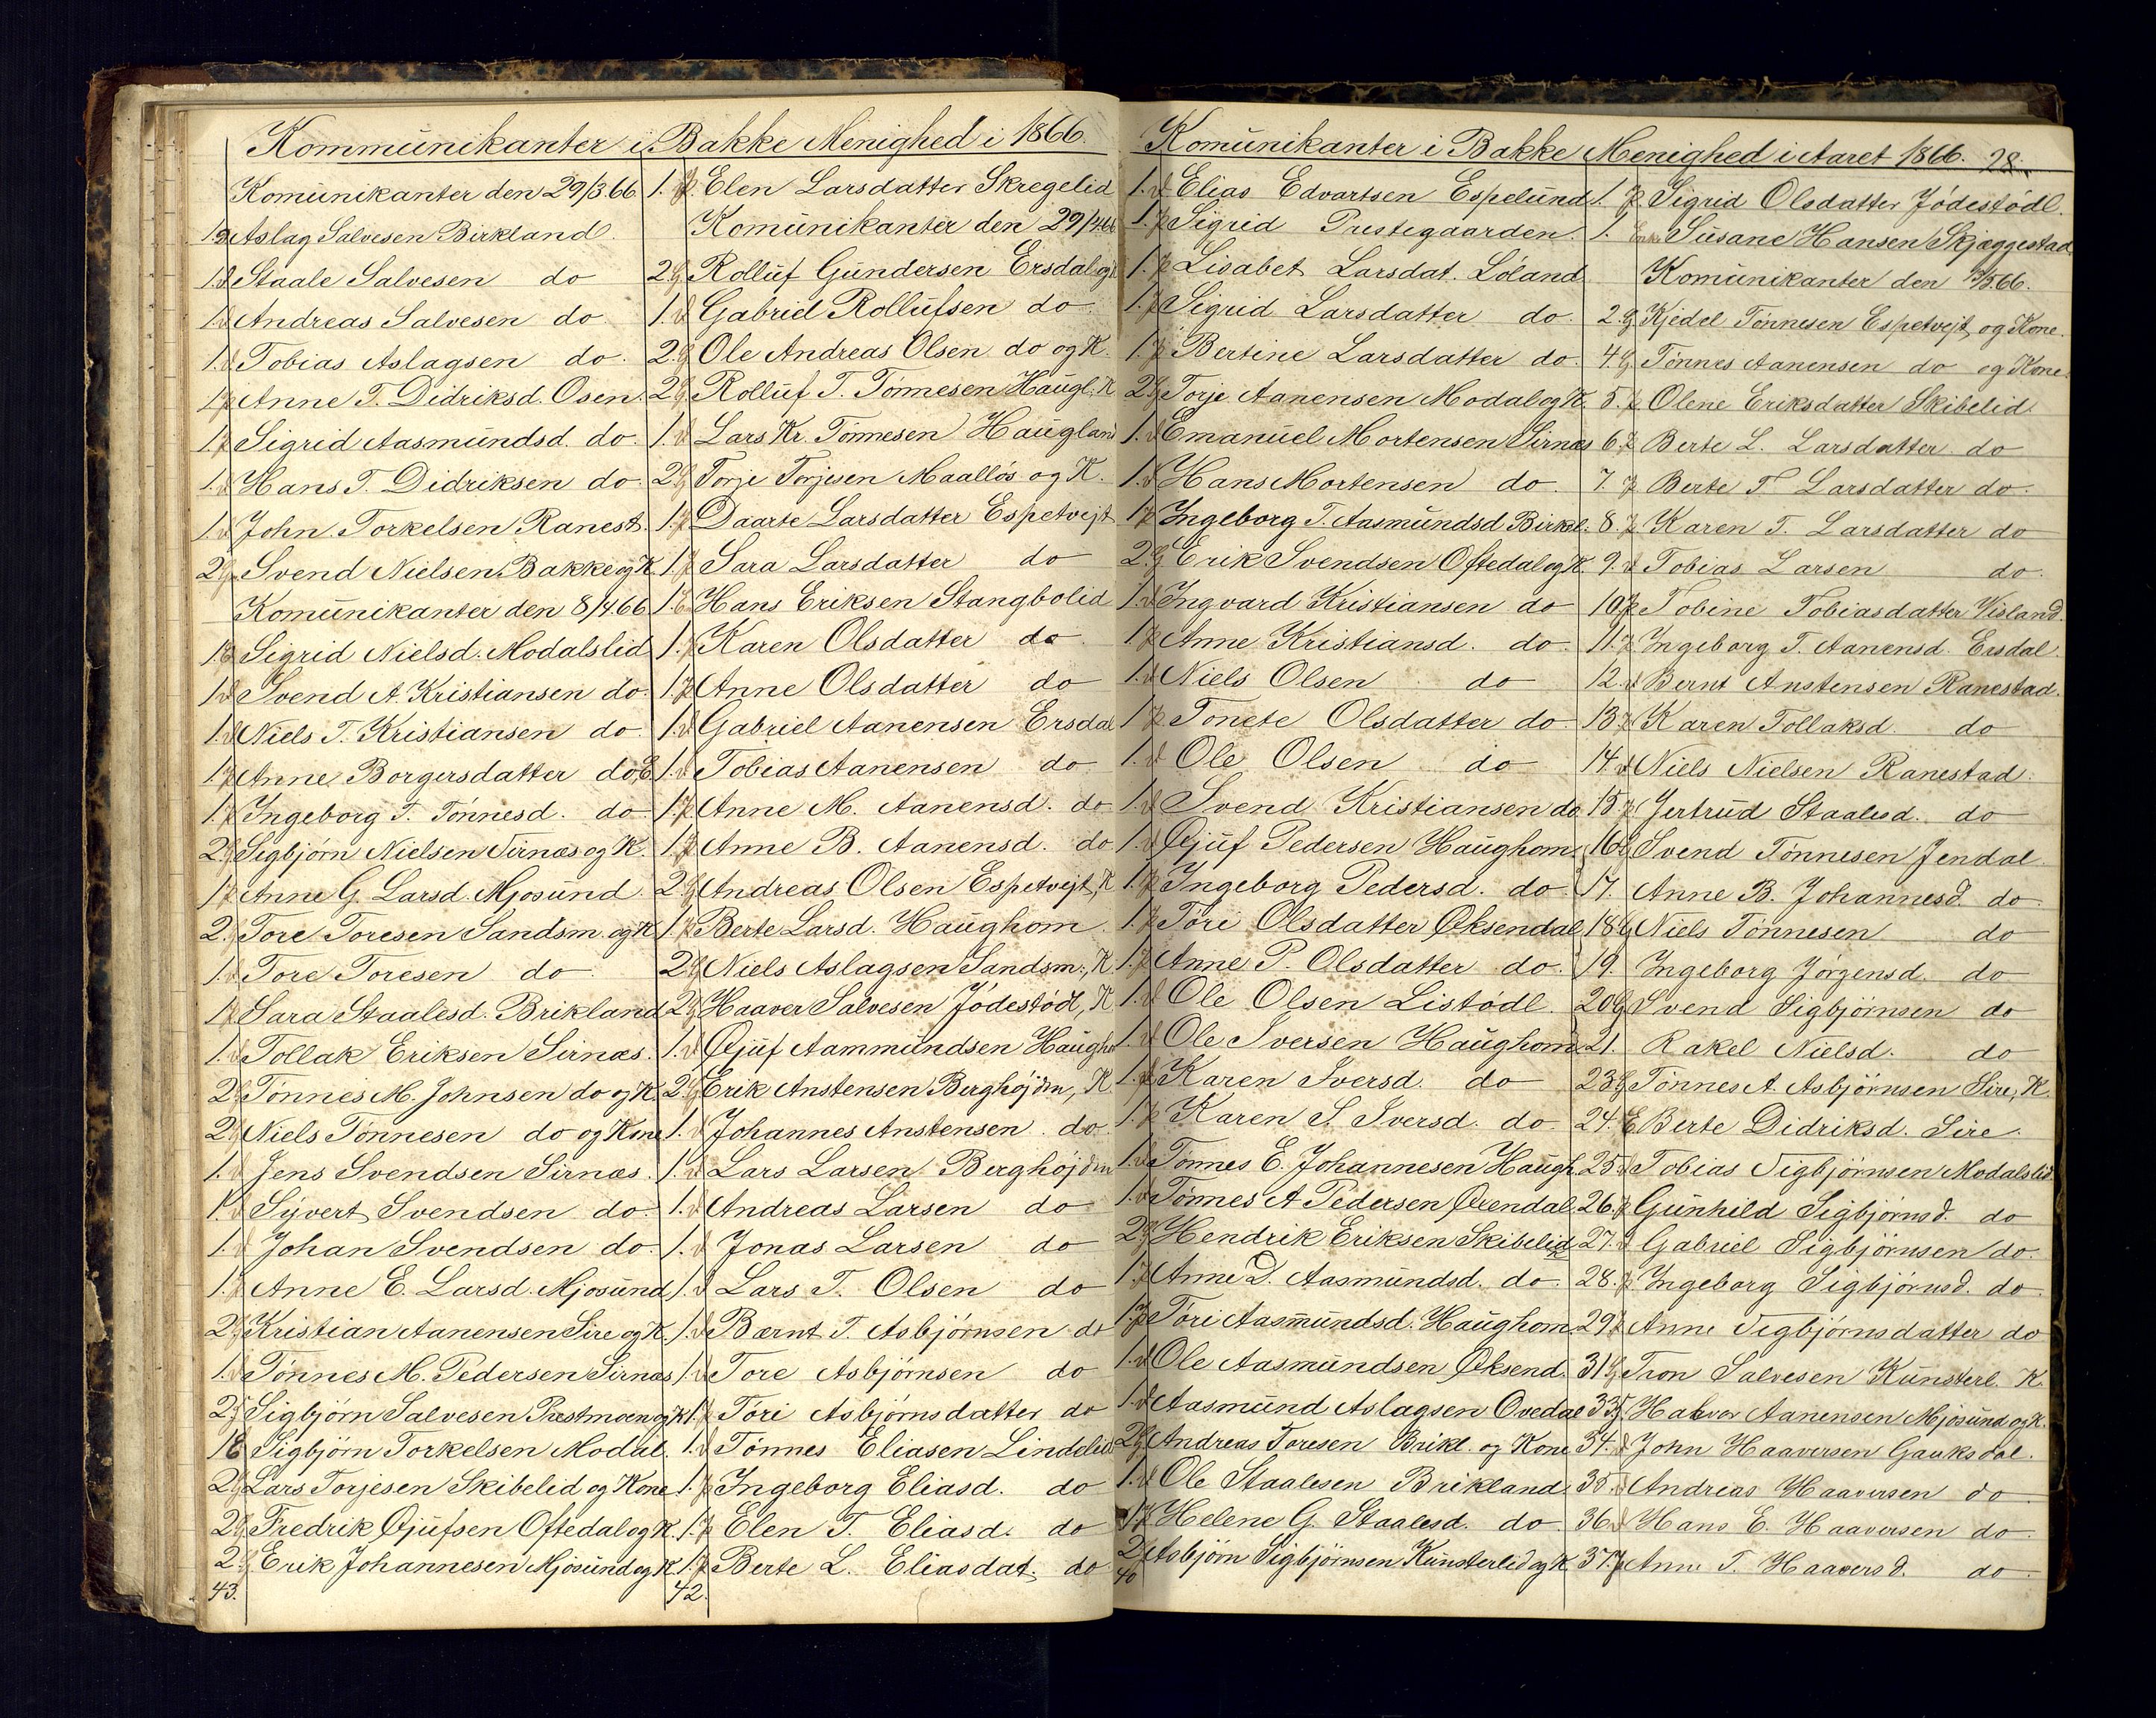 Kommunikanter i Bakke Menighed i 1866.
Komunikanter den 29/3.66
1. Aslag Salvesen Birkland
1. d Staale Salvesen do
1. d Andreas Salvesen do
1. d Tobias Aslagsen do.
1. p Anne T. Didriksd. Osen.
1. p Sigrid Aasmundsd. do.
1. d Hans T. Didriksen do.
1. d John Torkelsen Ranest.
2. g Svend Nielsen Bakke og K.
Komunikanter den 8/4.66
1. E Sigrid Nielsd. Modalslid
1. d Svend A. Kristiansen do.
1. d Niels T. Kristiansen do
1. p Anne Borgersdatter do, E.
1. p Ingeborg T. Tönnesd. do
2. g Sigbjörn Nielsen Sirnæs og K.
1. p Anne G. Larsd. Mjosund
2. g Tore Toresen Sandsm. og K
1. d Tore Toresen do
1. p Sara Staalesd. Brikland
1. d Tollak Eriksen Sirnæs.
2. g Tönnes M. Johnsen do og K.
2. g Niels Tönnesen do og Kone
1. d Jens Svendsen Sirnæs.
1. d Syvert Svendsen do.
1. d Johan Svendsen do.
1. p Anne E. Larsd. Mjosund
2. g Kristian Aanensen Sire og K.
1. d Tönnes M. Pedersen Sirnæs
2. g Sigbjörn Salvesen Præstmoen og K
1 E Sigbjörn Torkelsen Modal.
2. g Lars Torjesen Skibelid og Kone
2. g Fredrik Øjufsen Oftedal og K.
2. g Erik Johannesen Mjosund og K.
43.
1. p. Elen Larsdatter Skregelid
Komunikanter den 29/4.66
2. g Rolluf Gundersen Ersdal og K
1. d Gabriel Rollufsen do.
2. g Ole Andreas Olsen do og K.
2. g Rolluf T. Tönnesen Haugl. K
1. d Lars Kr. Tönnesen Hauglan
2. g Torje Torjesen Maallös og K.
1. p Daarte Larsdatter Espetvejt
1. p Sara Larsdatter do
1. E Hans Eriksen Stangbolid
1. p Karen Olsdatter do
1. p Anne Olsdatter do
1. d Gabriel Aanensen Ersdal
1. d Tobias Aanensen do
1. p Anne M. Aanensd. do
1. p Anne B. Aanensd. do
2. g Andreas Olsen Espetvejt, K
1. p Berte Larsd. Haughom
2. g Niels Aslagsen Sandsm., K
2. g Haaver Salvesen Jödestödl, K
1. d Øjuf Aammundsen Haugho
2. g Erik Anstensen Berghöjdm, K.
1. d Johannes Anstensen do
1. d Lars Larsen Berghöjdm
1. d Andreas Larsen do
1. d Jonas Larsen do
1. d Lars T. Olsen do
1. d Bærnt T. Asbjörnsen do
1. d Tore Asbjörnsen do
1. p Töri Asbjörnsdatter do
1. d Tönnes Eliasen Lindelid
1. p Ingeborg Eliasd. do
1. p Elen T. Eliasd. do
1. p Berte L. Eliasdat. do
42.
Komunikanter i Bakke Menighed i Aaret 1866. 28.
1. d Elias Edvartsen Espelund
1. p Sigrid Prestegaarden.
1. p Lisabet Larsdat. Löland
1. p Sigrid Larsdatter do.
1. p Bertine Larsdatter do.
2. g Torje Aanensen Modal og K.
1. d Emanuel Mortensen Sirnæs
1. d Hans Mortensen do.
1. p Ingeborg T. Aasmundsd Birkl.
2. g Erik Svendsen Oftedal og K.
1. d Ingvard Kristiansen do
1. p Anne Kristiansd. do.
1. d Niels Olsen do
1. p Tonete Olsdatter do
1. d Ole Olsen do
1. d Svend Kristiansen do
1. d Øjuf Pedersen Haughom.
1. p Ingeborg Pedersd. do
1. p Töri Olsdatter Øksendal
1. p Anne P. Olsdatter do.
1. d Ole Olsen Listödl.
1. d Ole Iversen Haughom
1. p Karen Iversd. do
1. p Karen S. Iversd. do.
1. d Tönnes E. Johannesen Haugh.
1. d Tönnes A Pedersen Øvendal
2. g Hendrik Eriksen Skibelid K
1. p Anne D. Aasmundsd. do.
1. p Töri Aasmundsd. Haughom.
1. d Ole Aasmundsen Øksend.
1. d Aasmund Aslagsen Ovedal
2. g Andreas Toresen Brikl. og Kone
1. d Ole Staalesen Brikland
1. p Helene G. Staalesd. do
2. g Asbjörn Sigbjörnsen Kunsterlid og K.
40
1. p. Sigrid Olsdatter Jödestödl.
1. Enke Susane Hansen Skjæggestad
Komunikanter den /5.66.
2. g Kjedel Tönnesen Espetvejt, og Kone.
4. g. Tönnes Aanensen do og Kone.
5. p Olene Eriksdatter Skibelid.
6. p Berte L. Larsdatter do
7. p Berte T Larsdatter do.
8. p Karen T. Larsdatter do
9. d Tobias Larsen do.
10. p Tobine Tobiasdatter Visland.
11. p Ingeborg T. Aanensd. Ersdal
12. d Bernt Anstensen Ranestad.
13. p Karen Tollaksd. do
14. d Niels Nielsen Ranestad.
15. p Jertrud Staalesd. do
16. g Svend Tönnesen Jendal
17. Anne B. Johannesd. do
18. g Niels Tönnesen do
19. Ingeborg Jörgensd. do
20. g Svend Sigbjörnsen do
21. Rakel Nielsd. do
23. g Tönnes A. Asbjörnsen Sire, K.
24. E Berte Didriksd. Sire.
25. d Tobias Sigbjörnsen Modalslid
26. p Gunhild Sigbjörnsd. do
27. d Gabriel Sigbjörnsen do.
28. p Ingeborg Sigbjörnsd. do
29. p Anne Sigbjörnsdatter do
31. g Tron Salvesen Kunsterl. K.
33. g Halvor Aanensen Mjösund og K.
34. d John Haaversen Gauksdal.
35. d Andreas Haaversen do
36. d Hans E. Haaversen do
37. p Anne T. Haaversd. do